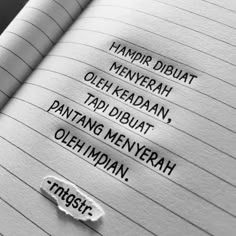 HAMPIR DIBUAT
MENYERAH
OLEH KEADAAN,
TAPI DIBUAT
PANTANG MENYERAH
OLEH IMPIAN.
-mtgstr-